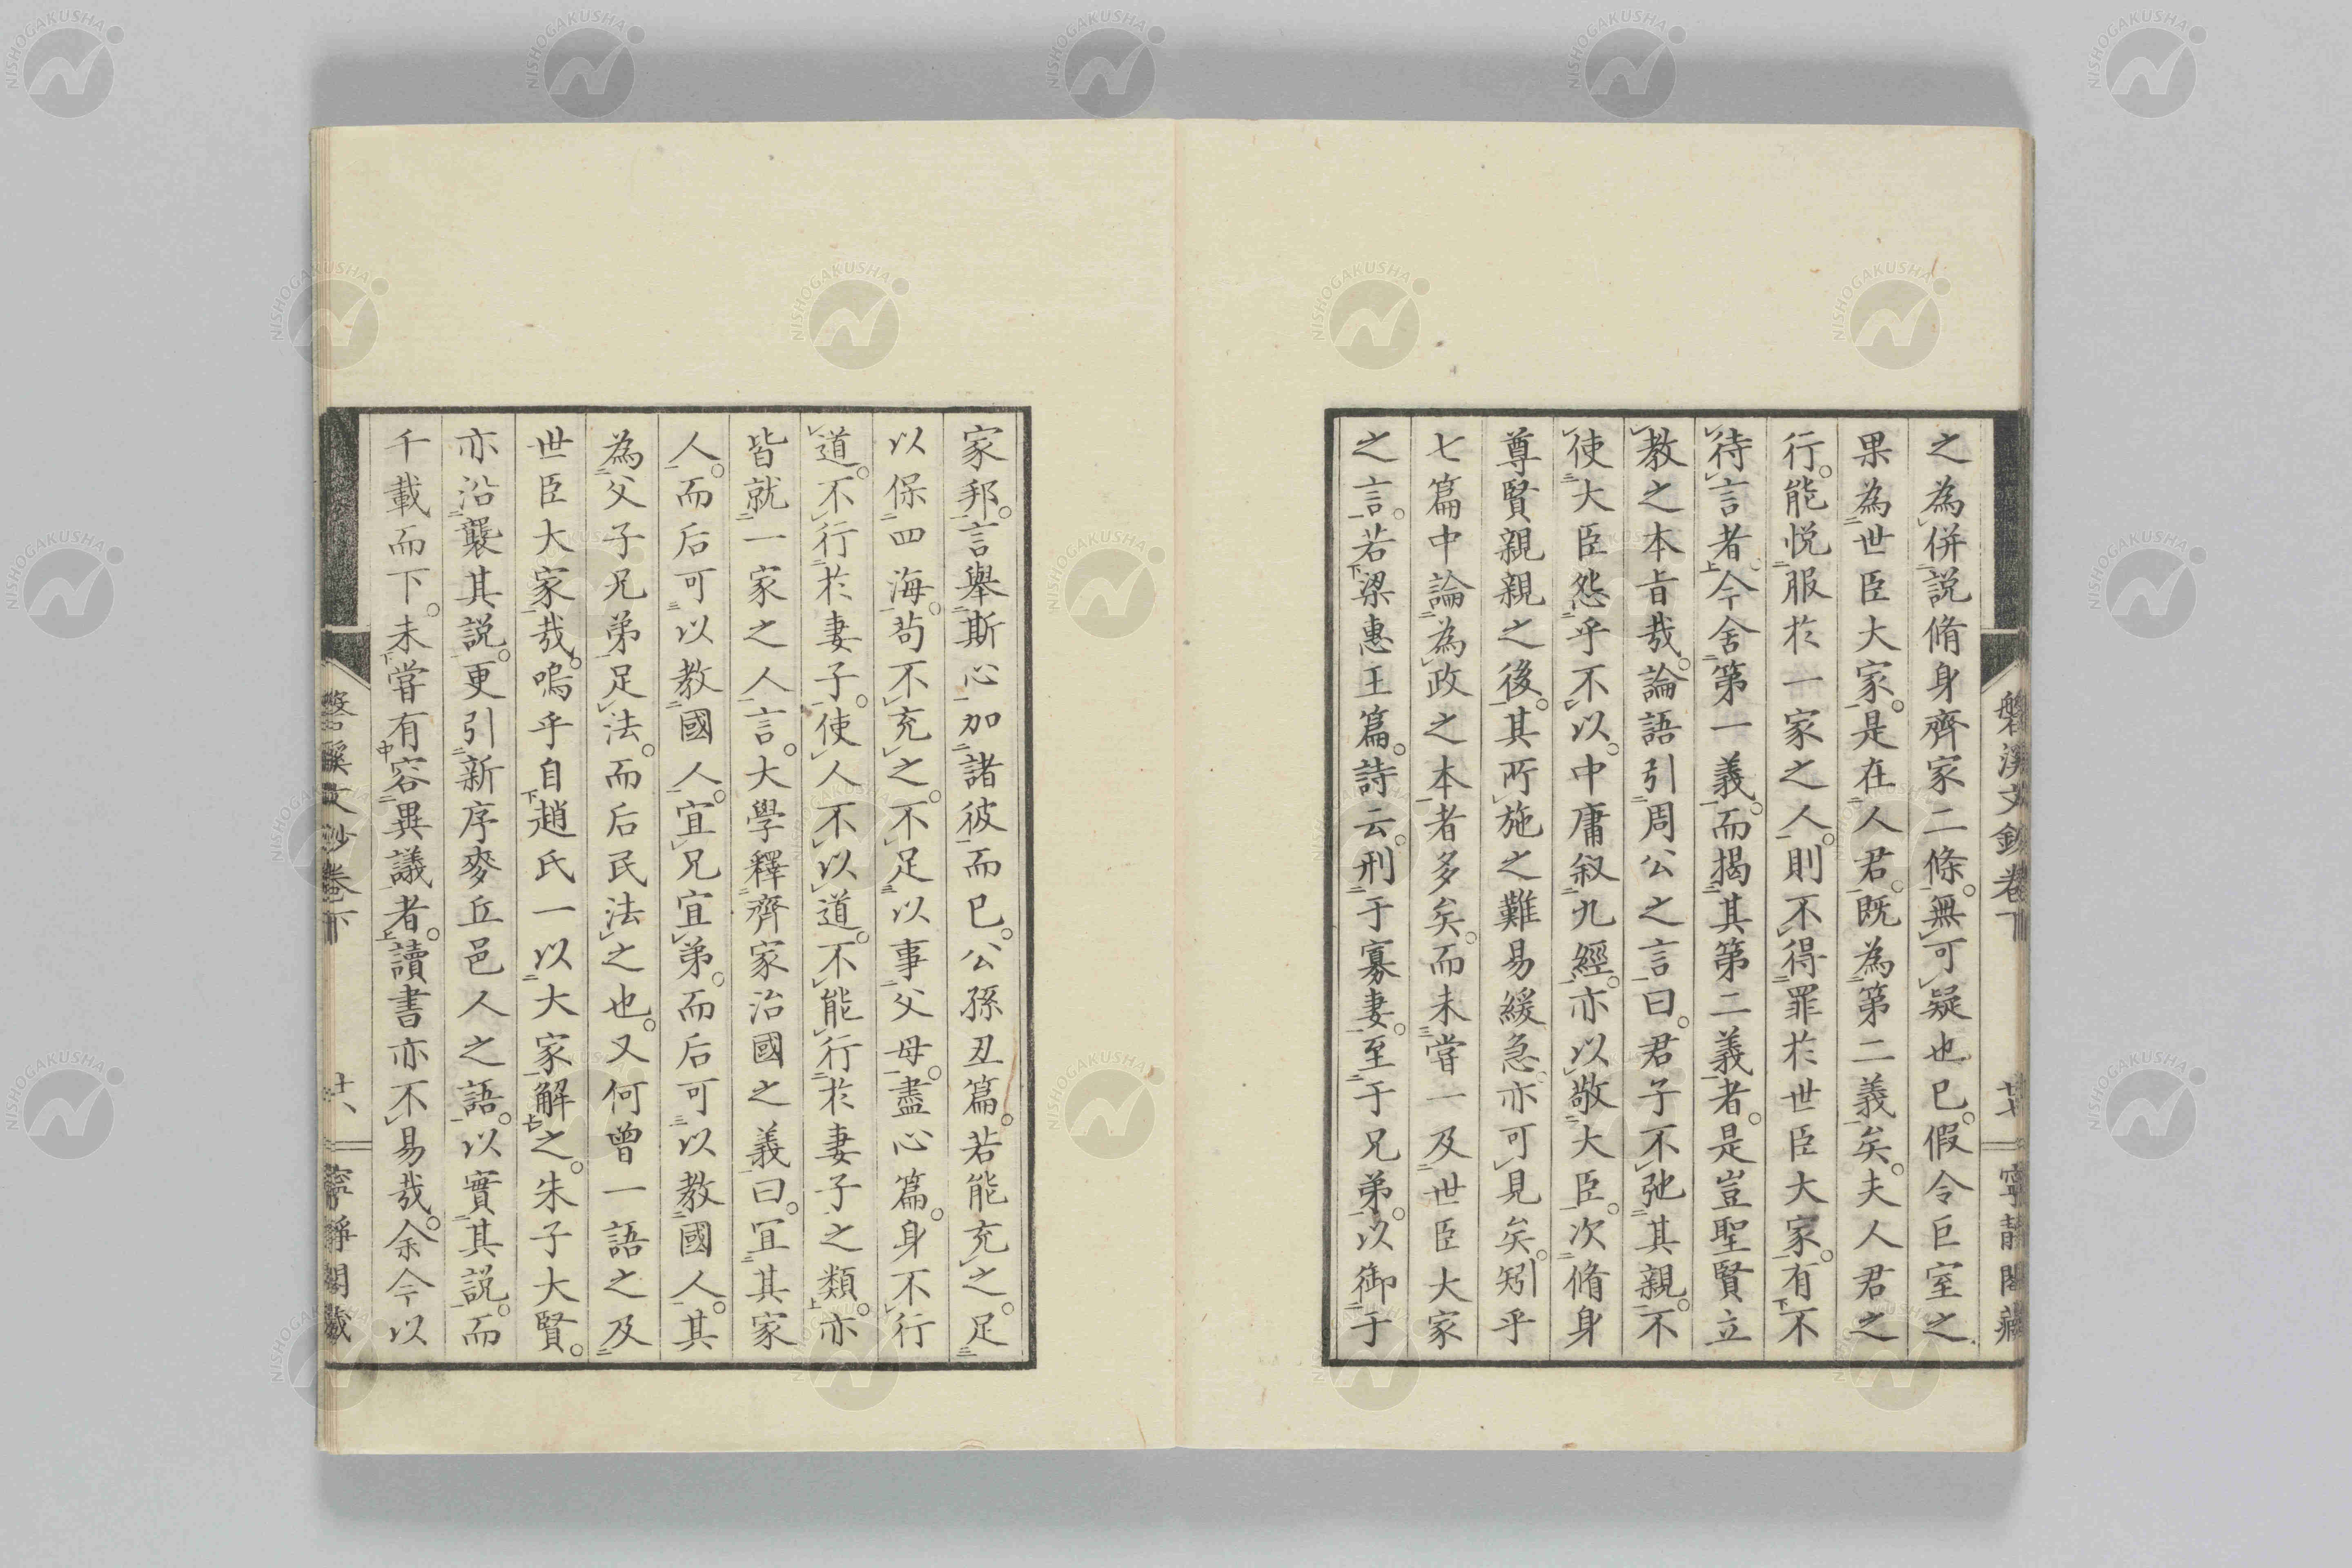 磐溪文鈔卷下 廿七 寧靜閣藏
之為併説脩身齊家二條。無可疑也已。假令巨室之
果為世臣大家。是在人君。既為第二義矣。夫人君之
行。能悦服於一家之人。則不得罪於世臣大家。有不
待言者。今舍第一義。而揭其第二義者。是豈聖賢立
教之本旨哉。論語引周公之言曰。君子不弛其親。不
使大臣怨乎不以。中庸叙九經。亦以敬大臣。次脩身
尊賢親親之後。其所施之難易緩急。亦可見矣。矧乎
七篇中論為政之本者多矣。而未嘗一及世臣大家
之言。若梁惠王篇。詩云。刑于寡妻。至于兄弟。以御于
家邦。言舉斯心加諸彼而已。公孫丑篇。若能充之。足
以保四海。苟不充之。不足以事父母。盡心篇。身不行
道。不行於妻子。使人不以道。不能行於妻子之類。亦
皆就一家之人言。大學釋齊家治國之義曰。宜其家
人。而后可以教國人。宜兄宜弟。而后可以教國人。其
為父子兄弟足法。而后民法之也。又何曾一語之及
世臣大家哉。嗚乎自趙氏一以大家解之。朱子大賢。
亦沿襲其説。更引新序麥丘邑人之語。以實其説。而
千載而下。未嘗有容異議者。讀書亦不易哉。余今以
磐溪文鈔卷下 寧靜閣藏
NISHOGAKUSHA